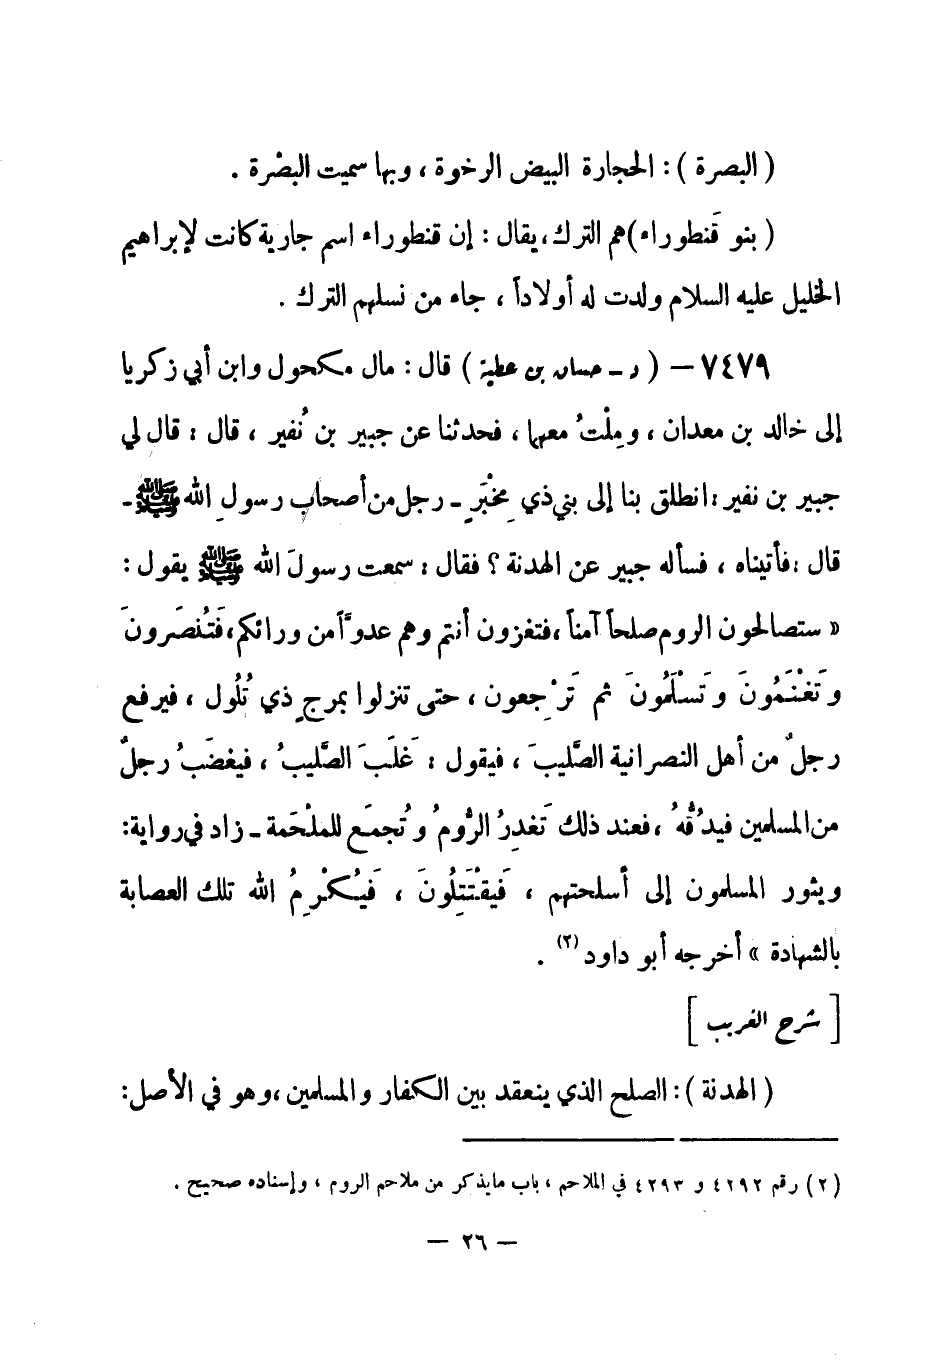 ( البصرة ) : الحجارة البيض الرخوة ، وبها سميت البصْرة .
( بنو قَنطوراء )هم الترك، يقال : إن قنطوراء اسم جارية كانت لإبراهيم
الخليل عليه السلام ولدت له أولاداً ، جاء من نسلهم الترك .
٧٤٧٩ – ( د ـ حسان بن عطية ) قال : مال مكحول وابن أبي زكريا
إلى خالد بن معدان ، ومِلْتُ معها ، فحدثنا عن جبير بن نُفير ، قال : قال لي
جبير بن نفير : انطلق بنا إلى بني ذي مِخْبَرٍ ـ رجل من أصحاب رسولِ الله ﷺ ـ
قال : فأتيناه ، فسأله جبير عن الهدنة ؟ فقال : سمعت رسولَ الله ﷺ يقول :
« ستصالحون الروم صلحاً آمناً ، فتغزون أنتم وهم عدوّاً من ورائكم، فَتُنصَرونَ
وتَغْنَمُونَ وتَسْلَمُونَ ثم تَرْجعون ، حتى تنزلوا بمرجٍ ذي تُلُول ، فيرفع
رجلٌ من أهل النصرانية الصَّليبَ ، فيقول : غَلَبَ الصَّليبُ ، فيغضَبُ رجلٌ
من المسلمين فيدُقُّهُ ، فعند ذلك تَغدِرُ الرُّومُ وتُجمَع للملْحَمة ـ زاد في رواية :
ويثور المسلمون إلى أسلحتهم ، فَيقْتَتِلُونَ ، فَيُكْرِمُ الله تلك العصابة
بالشهادة » أخرجه أبو داود (٢) .
[ شرح الغريب ]
( الهدنة ) : الصلح الذي ينعقد بين الكفار والمسلمين ، وهو في الأصل :
(٢) رقم ٤٢٩٢ و ٤٢٩٣ في الملاحم ، باب مايذكر من ملاحم الروم ، وإسناده صحيح .
— ٢٦ —